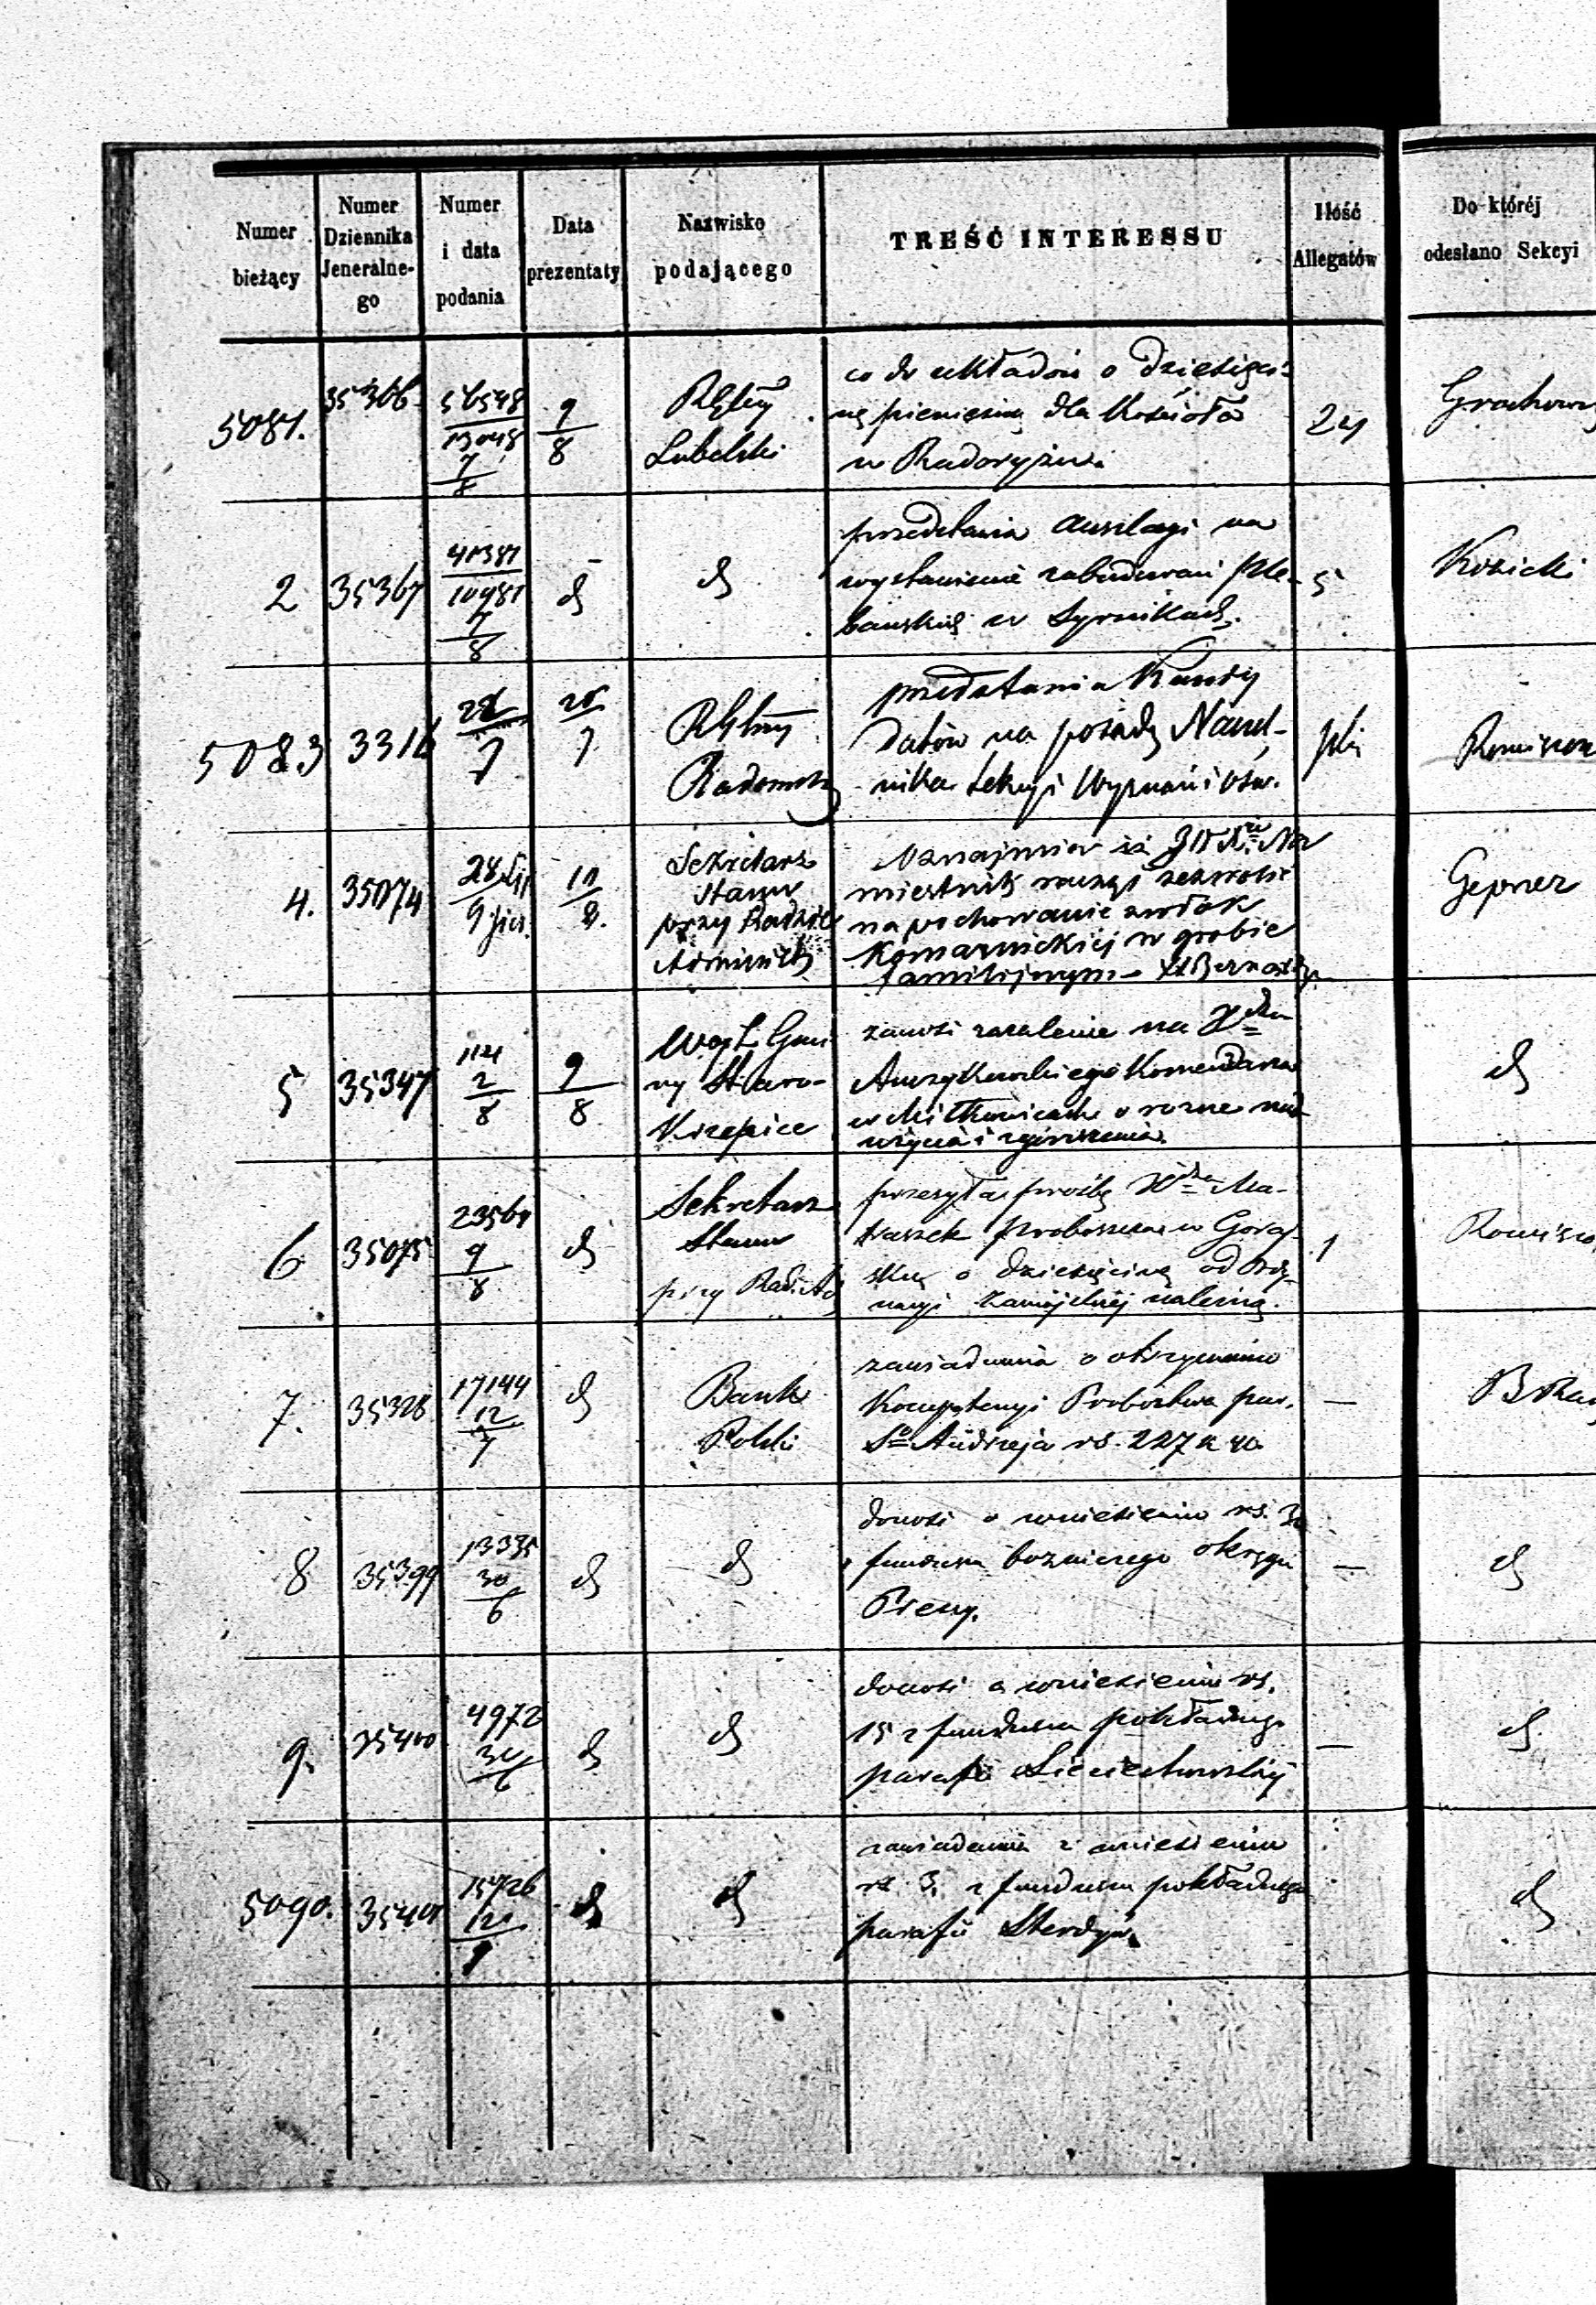 Numer bieżący
Numer Dziennika Jeneralne-go
Numer i data podania
Data prezentaty
Nazwisko podającego
TREŚĆ INTERESSU
Ilość Allegatów
Do któréj odesłano Sekcyi
5081.
35366
56548
13048
7
8
9
8
Lubelski
co do układów o Dziesięci-
nę pieniężną dla Kościoła
w Radoryżu
Grochow
2
35367
41381
10981
7
8
d
d
przedstawia
na
wystawienie zabudowań Ple-
bańskich w Syrnikach.
5
Kozicki
5083
3316
28
7
7
Radomski
przedstawia Kandy
datów na posadę Naczel-
nika Sekcyi Wyznań i Ośw.
plik
4.
35074
9
10
8.
Sekretarz
Stanu
przy Radzie
na pochowanie zwłok
Komarnickiej w grobie
familijnym
Gepner
5
35347
114
2
8
9
8
Wójt Gmi
ny Staro-
Krzepice
zanosi zażalenie na
Komendarza
w Mitkowicach o rozne nad
użycia i zgorszenia
d
6
35075
23564
9
8
d
Sekretarz
Stanu
przy Rad. Ad
przesyła prośbę Xdza Ma-
traszek Proboszcza w Goraj-
sku o dziesięcinę od Ordy-
nacyi Zamojskiej należną.
1
7.
35328
17144
12
7
d
Bank
Polski
zawiadamia o otrzymaniu
Kompetencyi Probostwa par.
Sgo Andrzeja rs. 227 k 40
—
8
35399
13335
30
6
d
d
donosi o wniesieniu rs. 30
funduszu bożniczego okręgu
Preny.
—
d
9.
35400
4972
30
6
d
d
donosi o wniesieniu rs.
15 z funduszu pokładnego
parafii Sieciechowskiej
—
d
5090.
35401
15726
12
7
d
d
zawiadamia o wniesieniu
rs 3. z funduszu pokładnego
parafii Sterdyń
d